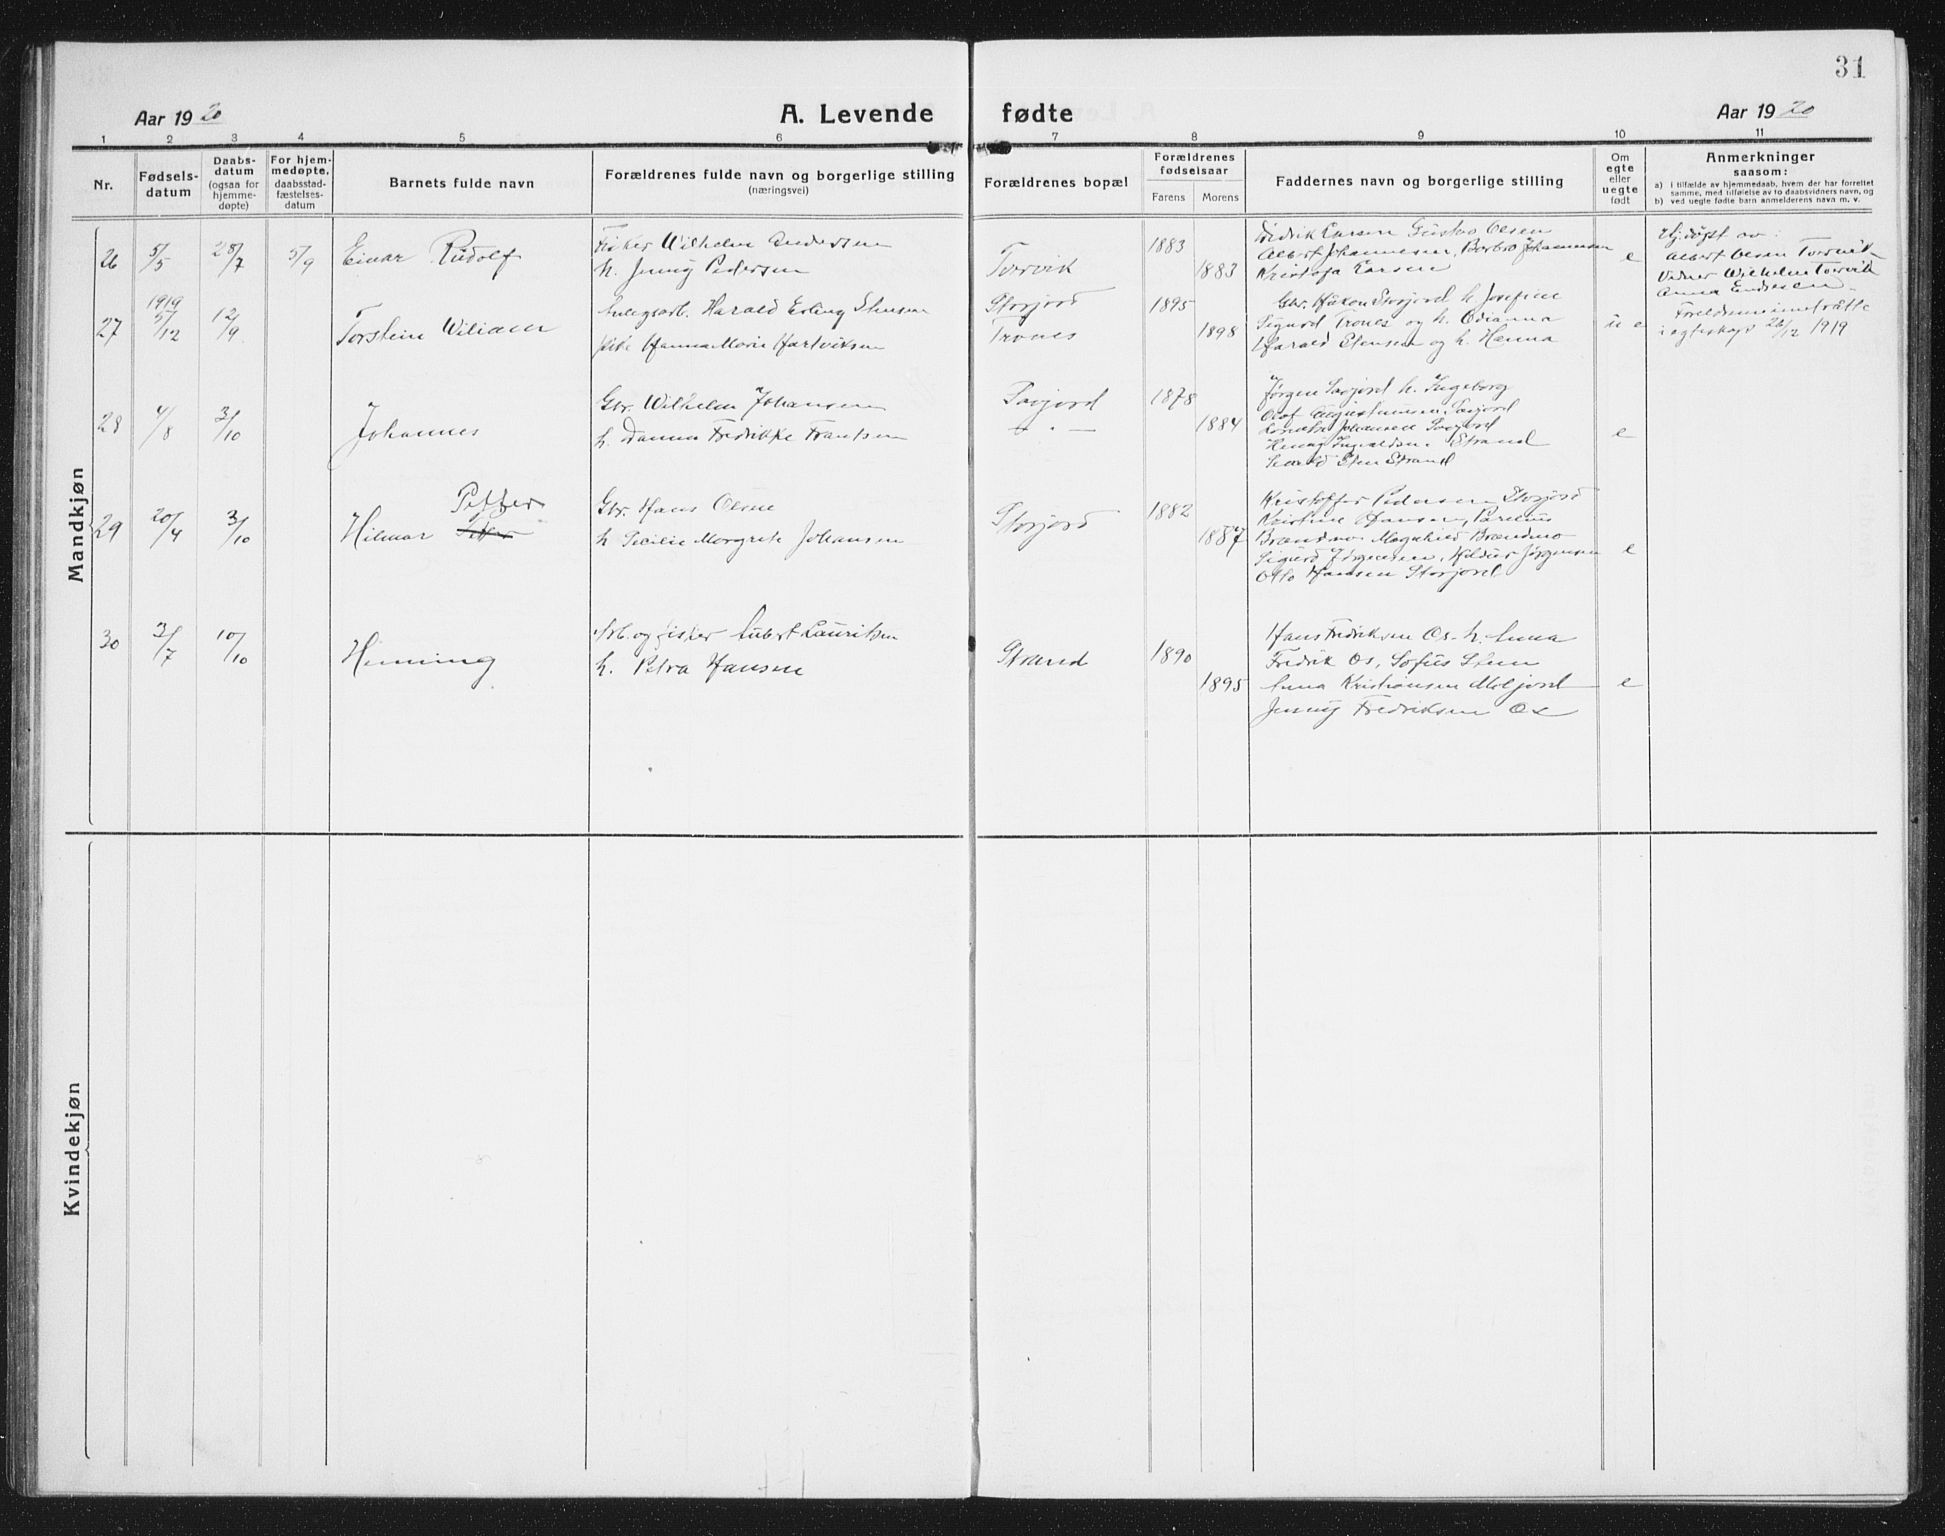 31
Aar 1920
A. Levende fødte
Aar 1920
1 2 3 4 5 6 7 8 9 10 11
Nr.
Fødsels-
datum
Daabs-
datum
(ogsaa for
hjemme-
døpte)
For hjem-
medøpte,
daabsstad-
fæstelses-
datum
Barnets fulde navn
Forældrenes fulde navn og borgerlige stilling
(næringsvei)
Forældrenes bopæl
Forældrenes
fødselsaar
Farens Morens
Faddernes navn og borgerlige stilling
Om
egte
eller
uegte
født
Anmerkninger
saasom:
a) I tilfælde av hjemmedaab, hvem der har forrettet
samme, med tilføielse av to daabsvidners navn, og
b) ved uegte fødte barn anmelderens navn m. v.
Mandkjøn
26 5/5 28/7 5/9 Einar Rudolf
Fisker Wilhelm Andersen
h. Jenny Pedersen
Torvik
1883
1883
Fredrik Larsen Gustav Olsen
Albert Johannesen, Borbro Johannesen
Kristofa Larsen
e
Hj.døpt av:
Albert Olsen Torvik
Vidner Wilhelm Torvik
Anna Endresen
27 1919 5/12 12/9 Torstein Wiliam
Anlegsarb. Harald Erling Stensen
Pike Hanna Marie Hartviksen
Storjord
Trones
1895
1898
Gbr. Håkon Storjord h. Josefine
Sigurd Trones og h. Edianna
Harald Stensen og h. Hanna
u e
Foreldrene inntrådte
i egteskap 26/12 1919
28 4/8 3/10 Johannes
Gbr. Wilhelm Johansen
h. Danna Fredrikke Frantsen
Savjord
— " —
1878
1884
Jørgen Savjord h. Ingeborg
Olaf Augustinusen Savjord
Johansen Savjord
Henny Ingvaldsen Strand
Sten Strand
e
29 20/4 3/10 Hilmar Petter
Gbr. Hans Olsen
h. Secilie Margrete Johansen
Storjord
1882
1887
Kristoffer Pedersen Storjord
Kristine Hansen, Parelius
Brændmo Magnhild Brændmo
Sigurd Jørgensen, Hildur Jørgensen
Otto Hansen Storjord
e
30 3/7 10/10 Henning
Arb. og fisker Lauritsen
h. Petra Hansen
Strand
1890
1895
Hans Fredriksen Os h. Anna
Fredrik Os, Sofus Sten
Anna Kristiansen Meljord
Jenny Fredriksen Os
e
Kvindekjøn